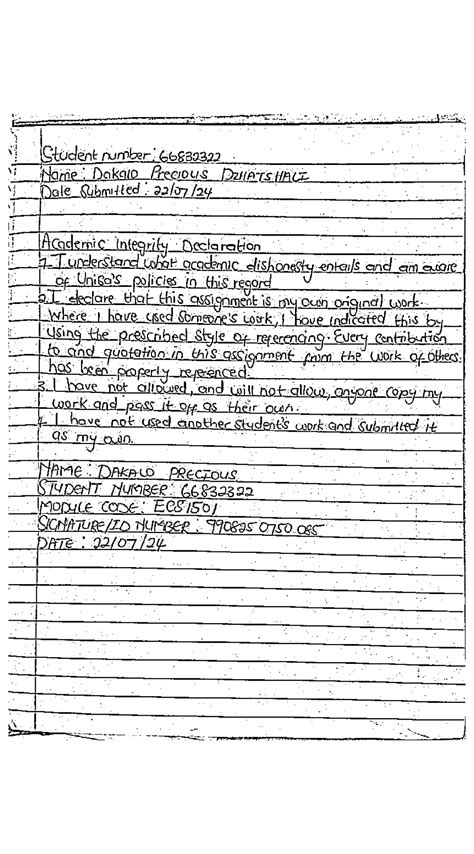 Student number: 66832322
Name: Dakalo Precious DZHATSHALI
Date Submitted: 22/07/24
Academic Integrity Declaration
1. I understand what academic dishonesty entails and am aware
of Unisa's policies in this regard
2. I declare that this assignment is my own original work.
Where I have used someone's work, I have indicated this by
using the prescribed style of referencing. Every contribution
to and quotation in this assignment from the work of others
has been properly referenced.
3. I have not allowed, and will not allow, anyone copy my
work and pass it off as their own.
4. I have not used another student's work and submitted it
as my own.
NAME: DAKALO PRECIOUS
STUDENT NUMBER: 66832322
MODULE CODE: ECS1501
SIGNATURE/ID NUMBER: 990825 0750 085
DATE: 22/07/24